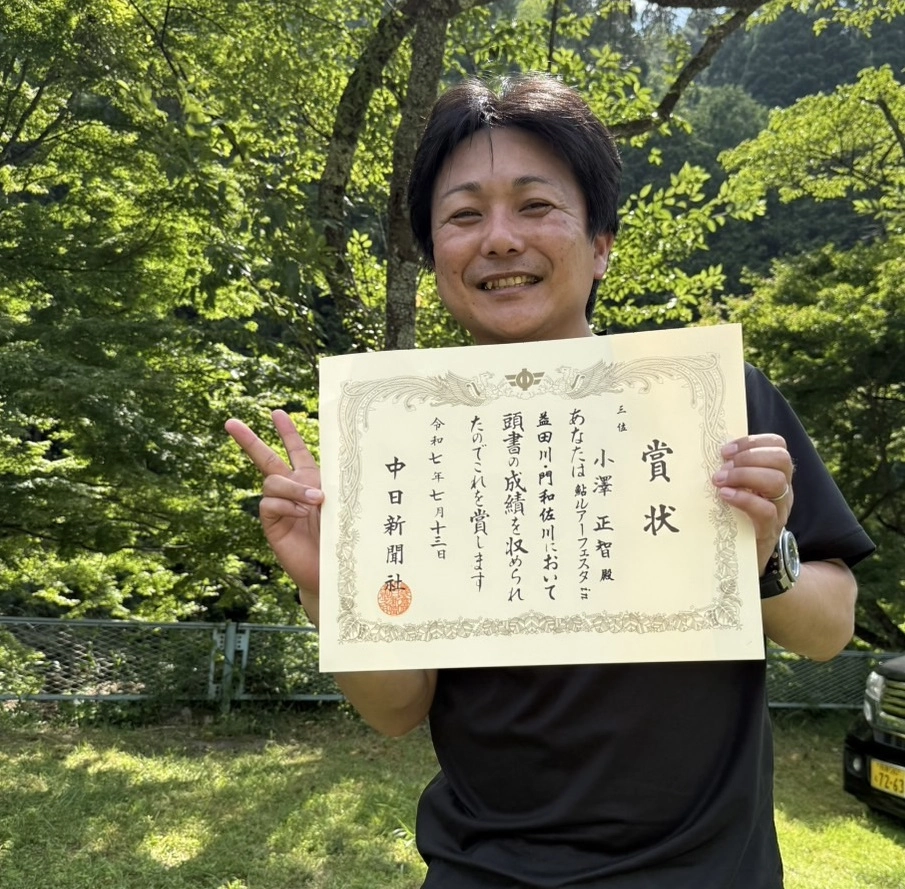 賞状
三位
小澤正智殿
あなたは鮎ルアーフェスタin
益田川・門和佐川において
頭書の成績を収められ
たのでこれを賞します
令和七年七月十三日
中日新聞社
72-63